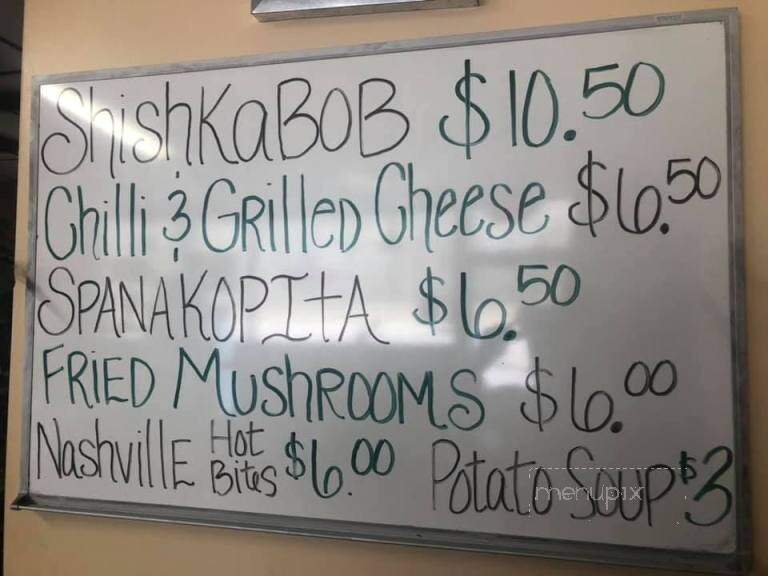 ShishKaBOB $10.50
Chilli & GRilleD Cheese $6.50
SPANAKOPItA $6.50
FRiED MushROOMS $6.00
NashvillE Hot Bites $6.00 Potato Soup $3
menupix